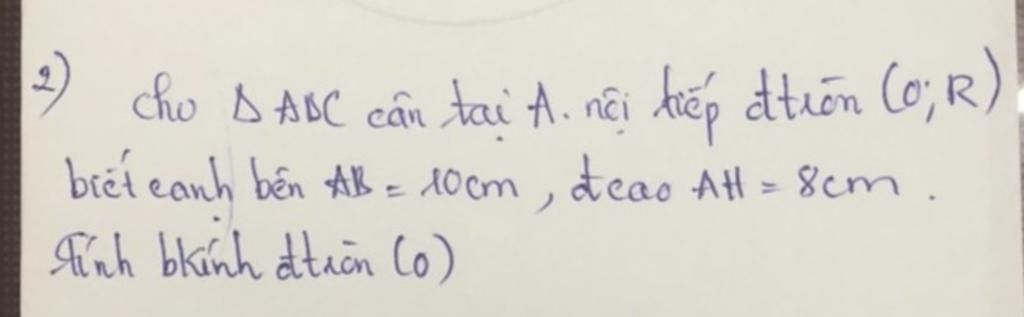 2) Cho Δ ABC cân tại A. nội tiếp đtròn (O; R)
biết cạnh bên AB = 10cm, đcao AH = 8cm.
Tính bkính đtròn (O)